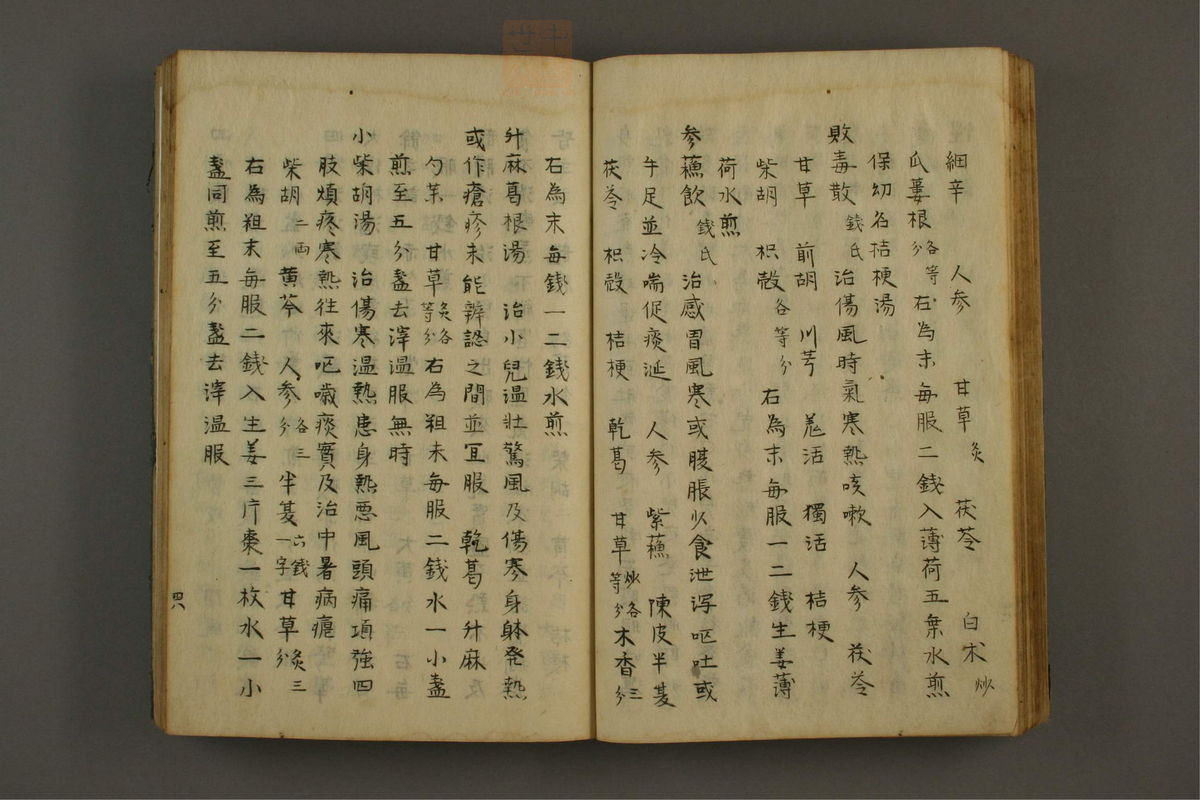 細辛 人参 甘草炙 茯苓 白术炒
瓜蔞根各等分 右為末每服二錢入薄荷五葉水煎
保幼名桔梗湯
敗毒散錢氏 治傷風時氣寒熱咳嗽 人参 茯苓
甘草 前胡 川芎 羌活 獨活 桔梗
柴胡 枳殻各等分 右為末每服一二錢生姜薄
荷水煎
参蘓飲錢氏 治感冒風寒或腹脹少食泄瀉呕吐或
手足並冷喘促痰涎 人参 紫蘓 陳皮半夏
茯苓 枳殻 桔梗 乾葛 甘草炒各等分木香三分
右為末每錢一二錢水煎
升麻葛根湯 治小兒温壮驚風及傷寒身躰発熱
或作瘡疹未能辨認之間並宜服 乾葛 升麻
勺薬 甘草炙各等分右為粗末每服二錢水一小盞
煎至五分盞去滓温服無時
小柴胡湯 治傷寒温熱患身熱悪風頭痛項強四
肢煩疼寒熱往來呕噦痰實及治中暑病瘧
柴胡二両 黄芩 人参各三分 半夏六錢一字甘草炙三分
右為粗末每服二錢入生姜三片棗一枚水一小
盞同煎至五分盞去滓温服
四八